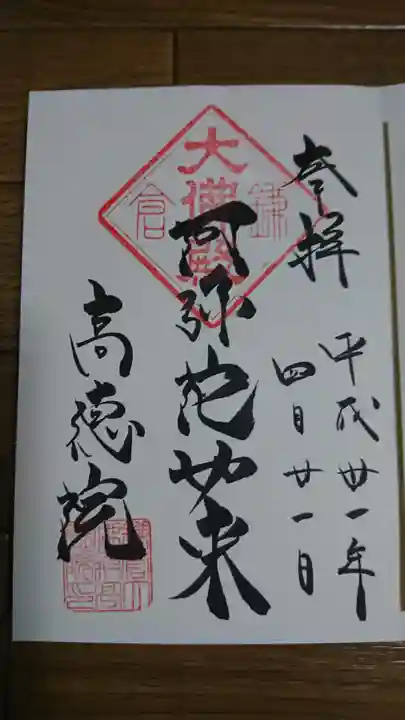 奉拝
平成廿一年
四月廿一日
大佛殿
鎌倉
阿弥陀如来
高徳院